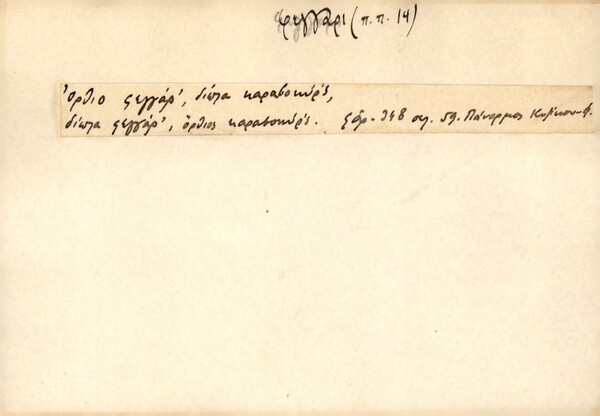 φεγγάρι (π.π. 14)
Όρθιο φεγγάρ', δίπλα καραβοκύρ'ς,
δίπλα φεγγάρ', όρθιος καραβοκύρ'ς. Σάρ. 348 σελ. 59. Πάνορμος Κυζίκου